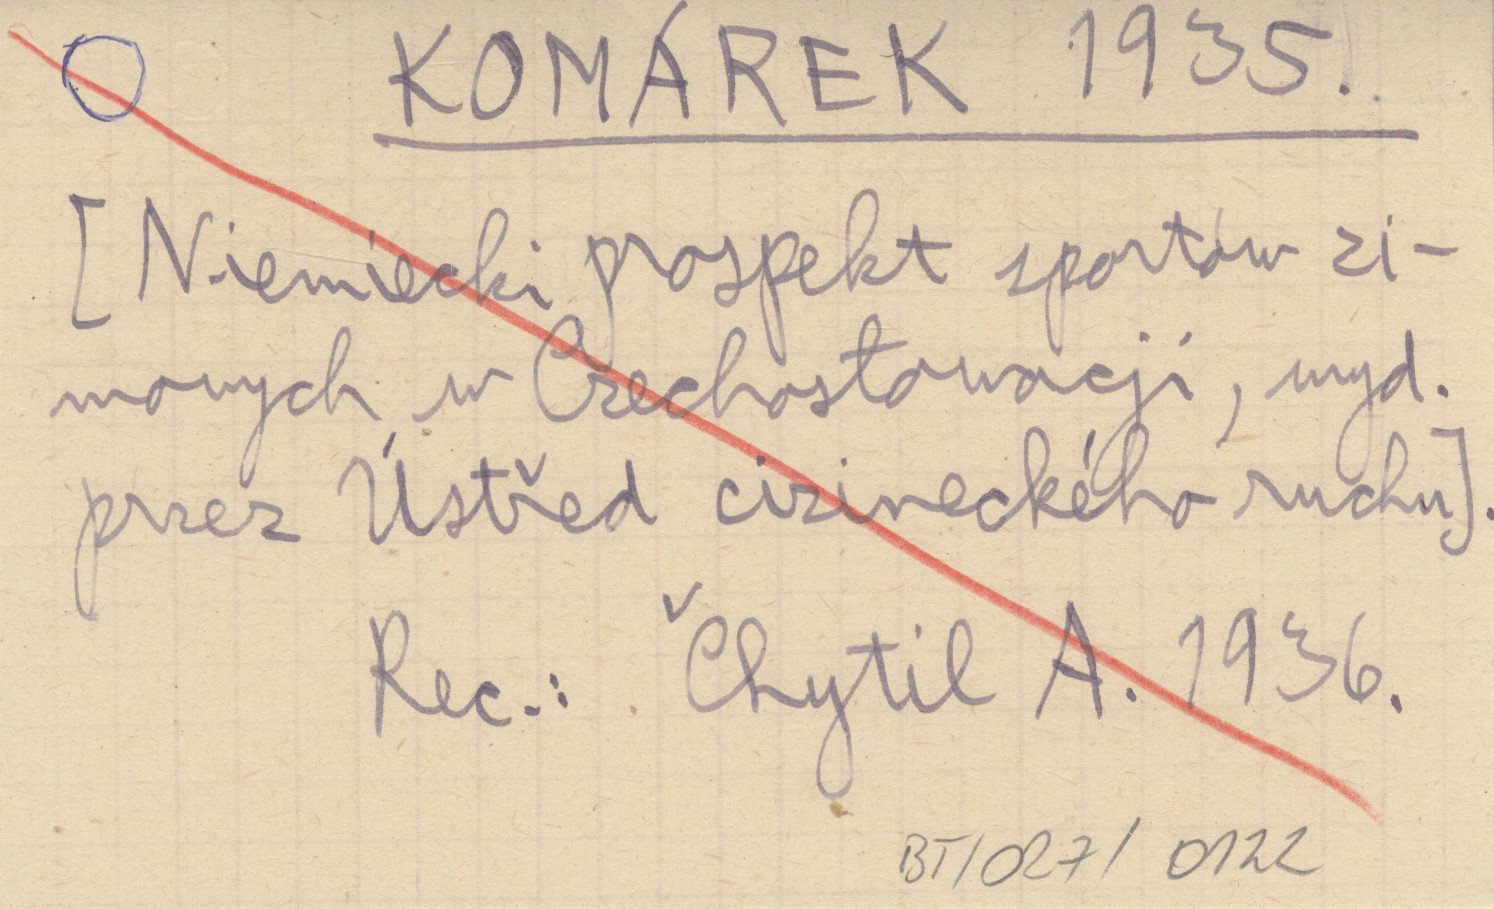 KOMÁREK 1935.
[Niemiecki prospekt sportów zi-
mowych w Czechosłowacji, wyd.
przez Ústřed cizineckého ruchu].
Rec.: Čhytil A. 1936.
BT/027/0122